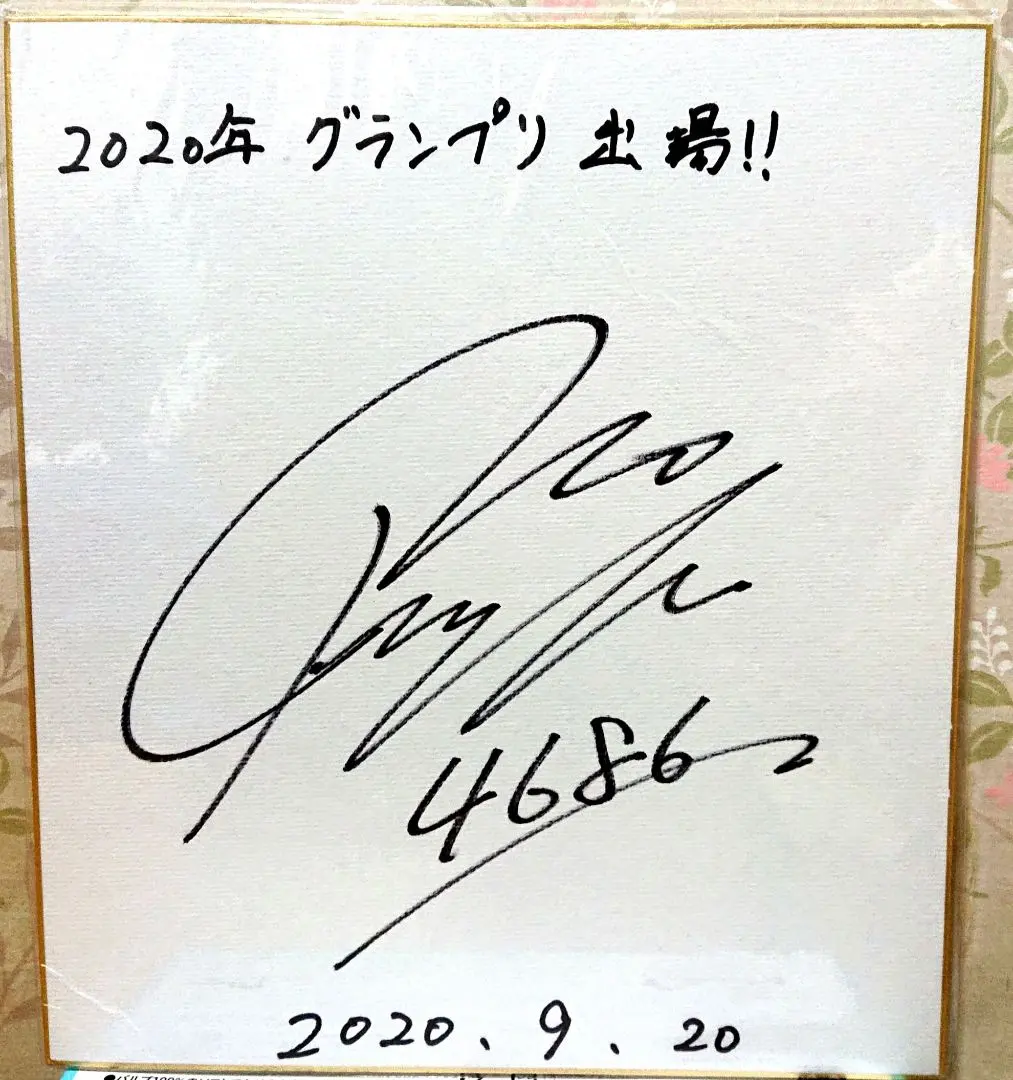 2020年 グランプリ 出場!!
4686
2020.9.20